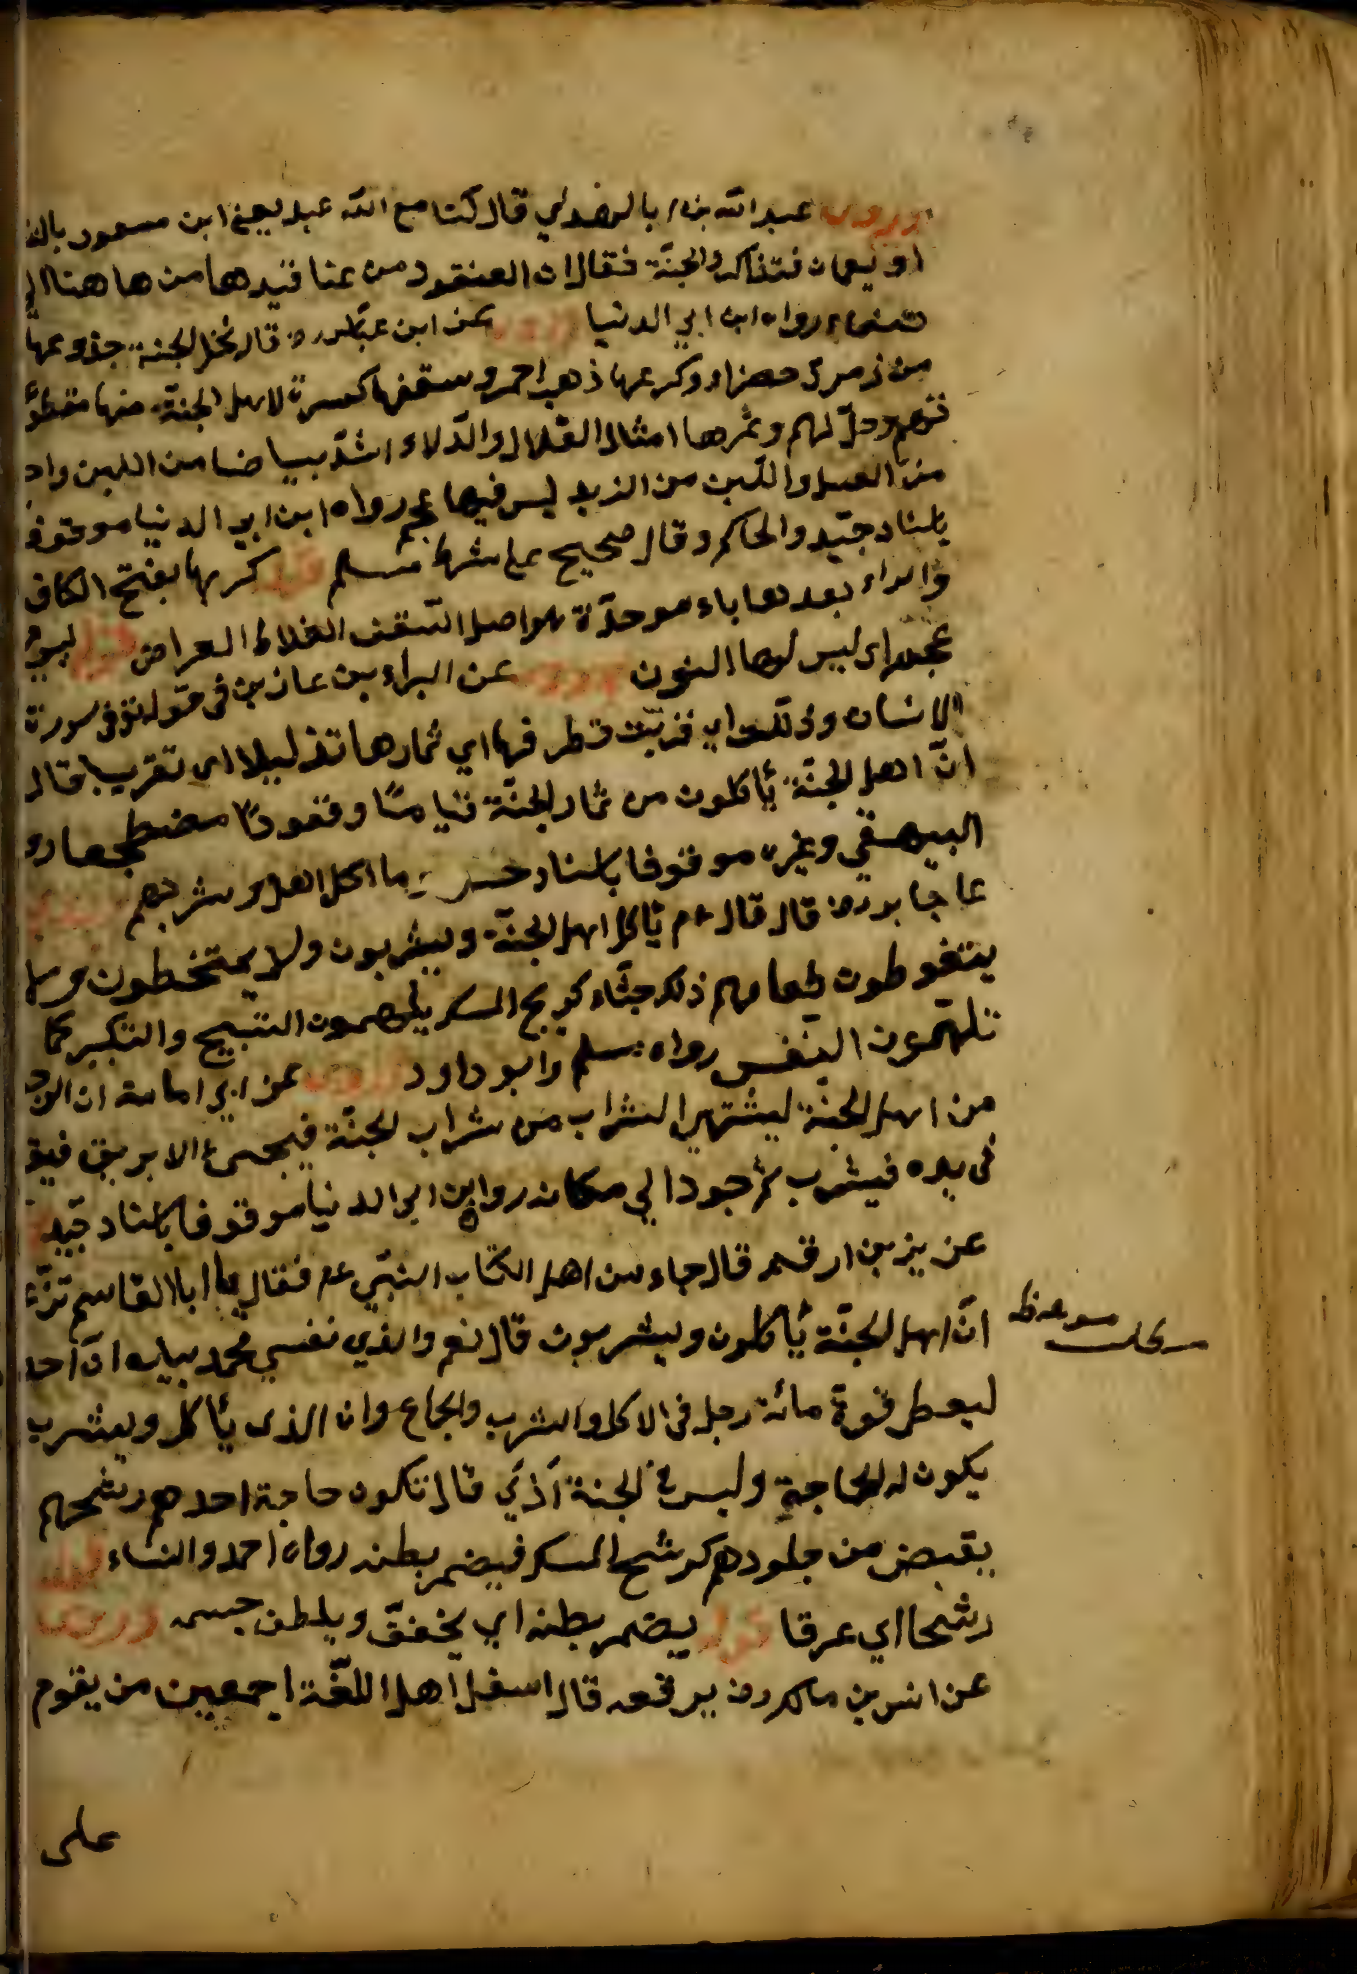 وروي عبد الله بن ابا الهذلي قال كنا مع الله عبد يعني ابن مسعود بالشا
او بعمان فتذاكروا الجنة فقال ان العنقود من عناقيدها من هاهنا الى
صنعاء رواه ابن ابي الدنيا وروي عن ابن عباس رض قال نخل الجنة جذوعها
من زمرد خضراء وكربها ذهب احمر وسعفها كسوة لاهل الجنة منها مقطو
تهم وحللهم وثمرها امثال القلال والدلاء اشد بياضا من اللبن واح
من العسل والين من الزبد ليس فيها عجم رواه ابن ابي الدنيا موقوفا
باسناد جيد والحاكم وقال صحيح على شرط مسلم قوله كربها بفتح الكاف
والراء بعدها باء موحدة هو اصل السعف الغلاظ العراض قوله ليس
عجم اى ليس لها النون وروي عن البراء بن عازب في قوله تع في سورة
الانسان وذللت اي قربت قطوفها اي ثمارها تذليلا اى تقريبا قال
ان اهل الجنة يأكلون من ثمار الجنة قياما وقعودا مضطجعا رو
البيهقي وغيره موقوفا باسناد حسن ما اكل اهل وشربهم
عن جابر رض قال قال عم يأكل اهل الجنة ويشربون ولا يمتخطون ولا
يتغوطون طعامهم ذلك جشاء كريح المسك يلهمون التسبيح والتكبير كما
تلهمون النفس رواه مسلم وابو داود وروي عن ابي امامة ان الرجل
من اهل الجنة ليشتهي الشراب من شراب الجنة فيجيء الابريق فيق
في يده فيشرب ثم يعود الى مكانه رواه ابن ابي الدنيا موقوفا باسناد جيد
عن يزيد بن ارقم قال جاء من اهل الكتاب النبي عم فقال يا ابا القاسم تزع
ان اهل الجنة يأكلون ويشربون قال نعم والذي نفسي محمد بيده ان احد
ليعطى قوة مائة رجل في الاكل والشرب والجماع وان الذى يأكل ويشرب
يكون له الحاجة وليس في الجنة اذي قال تكون حاجة احدهم رشحهم
يفيض من جلودهم كرشح المسك فيضمر بطنه رواه احمد والنساء قوله
رشحا اي عرقا قوله يضمر بطنه اي يخفف ويلطف جسمه وروي
عن انس بن مالك رض يرفعه قال اسفل اهل اللغة اجمعين من يقوم
على